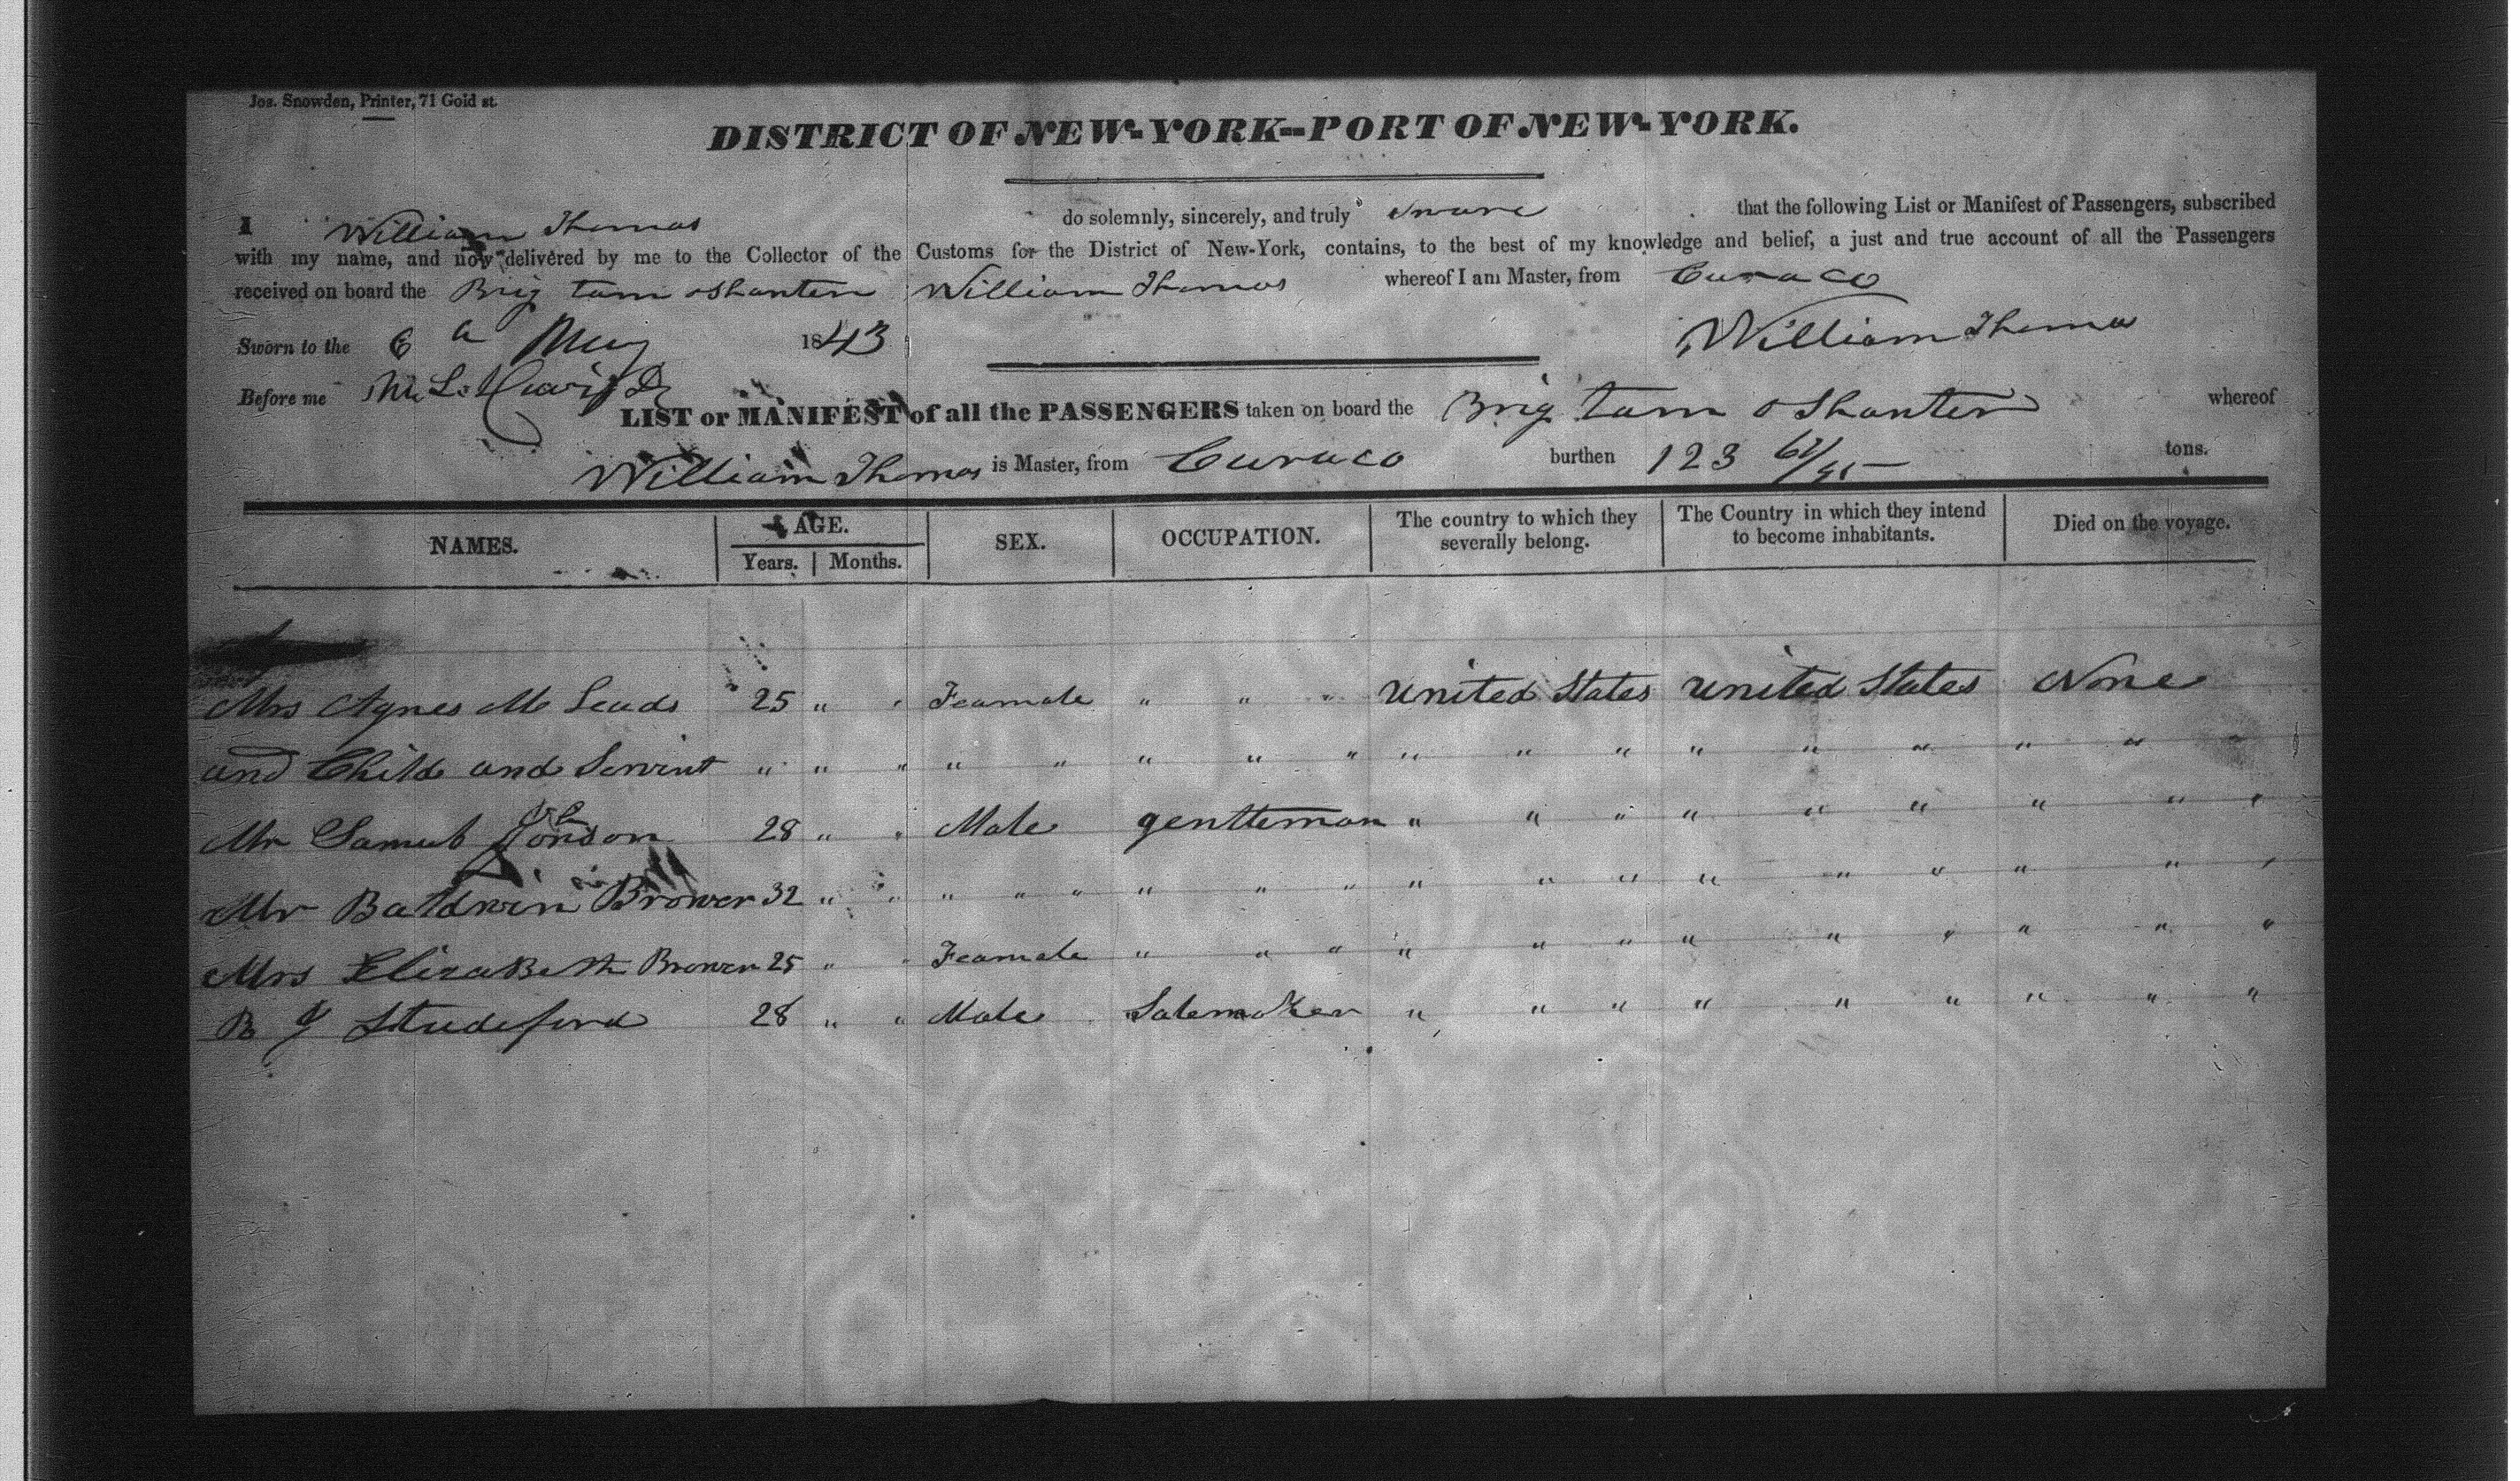 Jos. Snowden, Printer, 71 Gold st.
DISTRICT OF NEW-YORK--PORT OF NEW-YORK.
I William Thomas do solemnly, sincerely, and truly sware that the following List or Manifest of Passengers, subscribed
with my name, and now delivered by me to the Collector of the Customs for the District of New-York, contains, to the best of my knowledge and belief, a just and true account of all the Passengers
received on board the Brig tam oShanter William Thomas whereof I am Master, from Curaco
Sworn to the 6 May 1843 William Thomas
Before me
LIST or MANIFEST of all the PASSENGERS taken on board the Brig tam oShanter whereof
William Thomas is Master, from Curaco burthen 123 tons.
NAMES. AGE. SEX. OCCUPATION. The country to which they severally belong. The Country in which they intend to become inhabitants. Died on the voyage.
Years. Months.
Mrs Agnes 25 " " Feamale " " " united States united States None
and Child and Servint " " " " " " " " " " " " " " " "
Mr 28 " " Male gentteman " " " " " " " " "
Mr Baldwin Brower 32 " " " " " " " " " " " " " " " " "
Mrs ElizaBeth Brower 25 " " Feamale " " " " " " " " " " " "
B J Studeford 28 " " Male Salemaker " " " " " " " " "